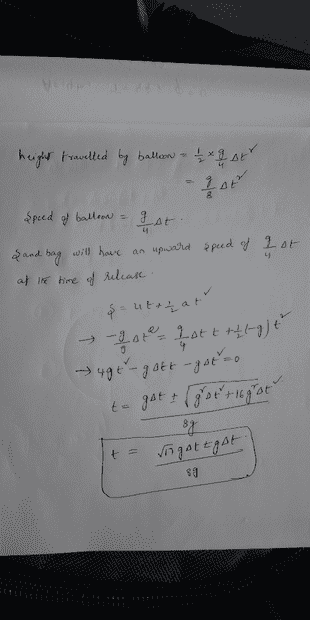 height travelled by balloon = 1/2 × g/4 Δt²
= g/8 Δt²
Speed of balloon = g/4 Δt.
Sandbag will have an upward speed of g/4 Δt
at the time of release.
S = ut + 1/2 at²
→ -g/8 Δt² = g/4 Δt t + 1/2 (-g) t²
→ 4gt² - gΔtt - gΔt² = 0
t = gΔt ± √(g²Δt² + 16g²Δt²) / 8g
t = √17 gΔt ± gΔt / 8g